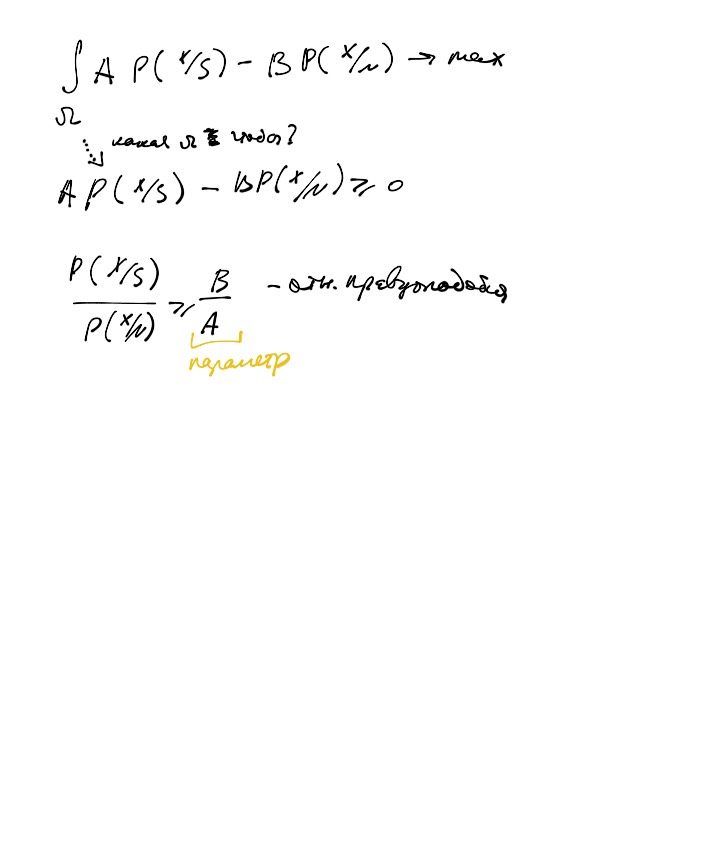 ∫ A P(x/s) − B P(x/n) → max
Ω
какая Ω чтобы?
A P(x/s) − B P(x/N) ⩾ 0
P(x/s) / P(x/N) ⩾ B / A - отн. правдоподобия
параметр